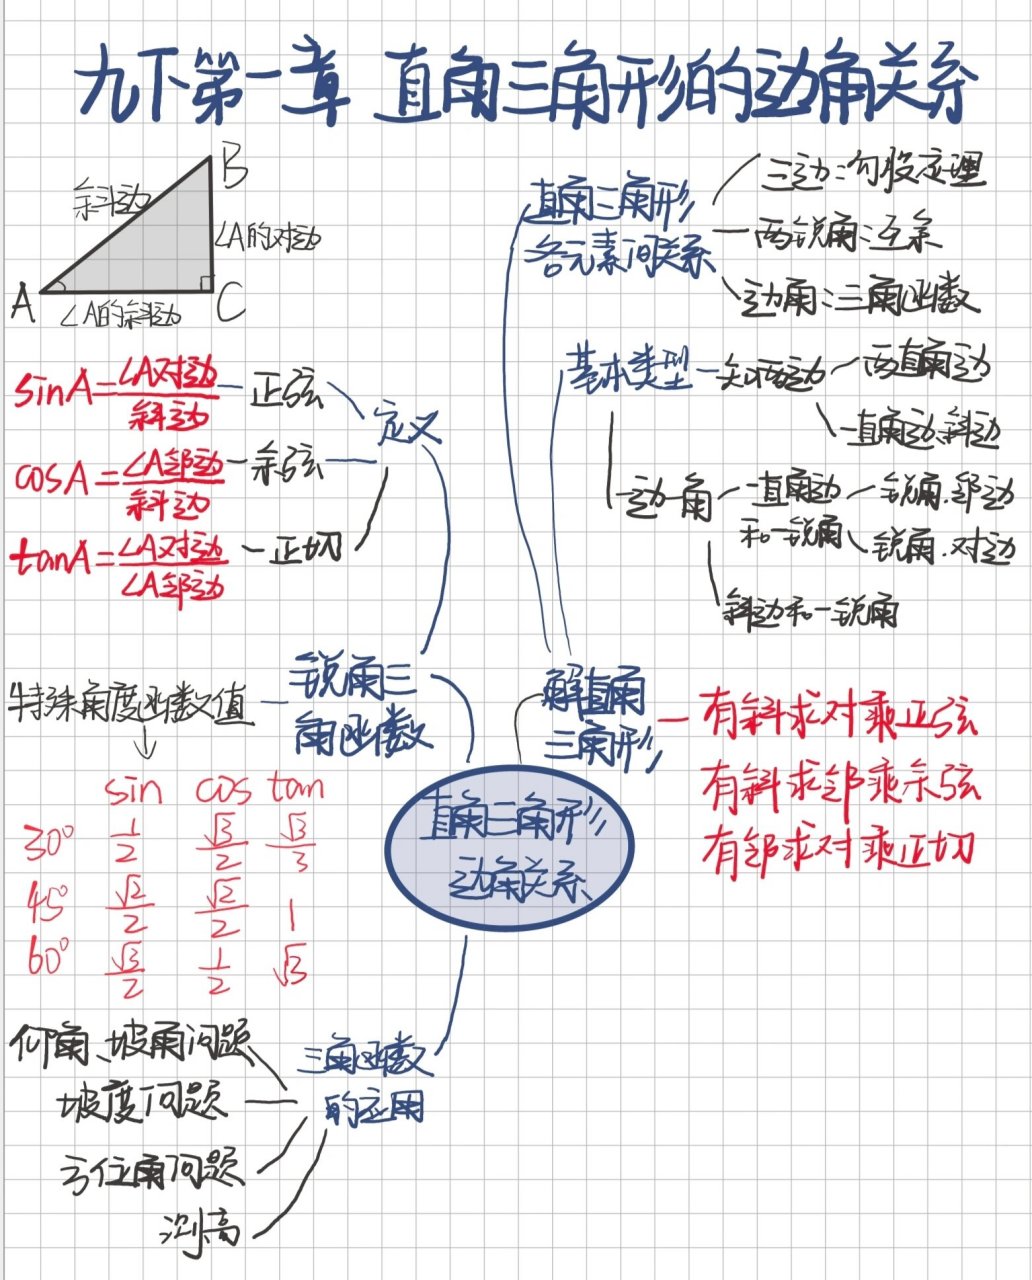 九下第一章 直角三角形的边角关系
B
斜边
∠A的对边
A
C
∠A的斜边
sinA=∠A对边/斜边
正弦
cosA=∠A邻边/斜边
余弦
tanA=∠A对边/∠A邻边
正切
定义
锐角三
角函数
特殊角度函数值
sin cos tan
30° 1/2 √3/2 √3/3
45° √2/2 √2/2 1
60° √3/2 1/2 √3
直角三角形
各元素间关系
三边:勾股定理
两锐角:互余
边角:三角函数
基本类型
知两边
两直角边
一直角边、斜边
一边一角
一直角边
和一锐角
锐角.邻边
锐角.对边
斜边和一锐角
解直角
三角形
有斜求对乘正弦
有斜求邻乘余弦
有邻求对乘正切
直角三角形
边角关系
三角函数
的应用
仰角、坡角问题
坡度问题
方位角问题
测高